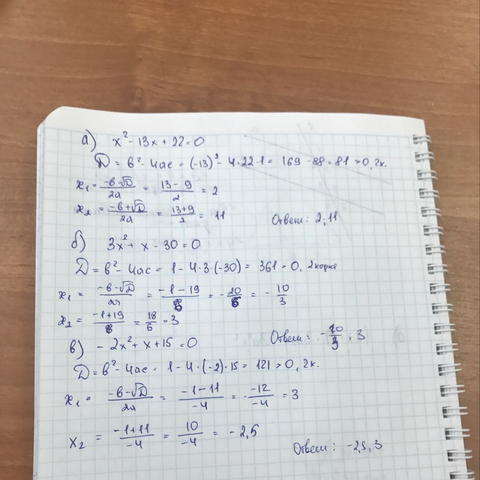 а) x² - 13x + 22 = 0
D = b² - 4ac = (-13)² - 4·22·1 = 169 - 88 = 81 > 0, 2к.
x₁ = (-b-√D)/2a = (13-9)/2 = 2
x₂ = (-b+√D)/2a = (13+9)/2 = 11
Ответ: 2, 11
б) 3x² + x - 30 = 0
D = b² - 4ac = 1 - 4·3·(-30) = 361 > 0, 2 корня
x₁ = (-b-√D)/2a = (-1-19)/6 = -20/6 = -10/3
x₂ = (-1+19)/6 = 18/6 = 3
Ответ: -10/3, 3
в) -2x² + x + 15 = 0
D = b² - 4ac = 1 - 4·(-2)·15 = 121 > 0, 2к.
x₁ = (-b-√D)/2a = (-1-11)/-4 = -12/-4 = 3
x₂ = (-1+11)/-4 = 10/-4 = -2,5
Ответ: -2,5, 3